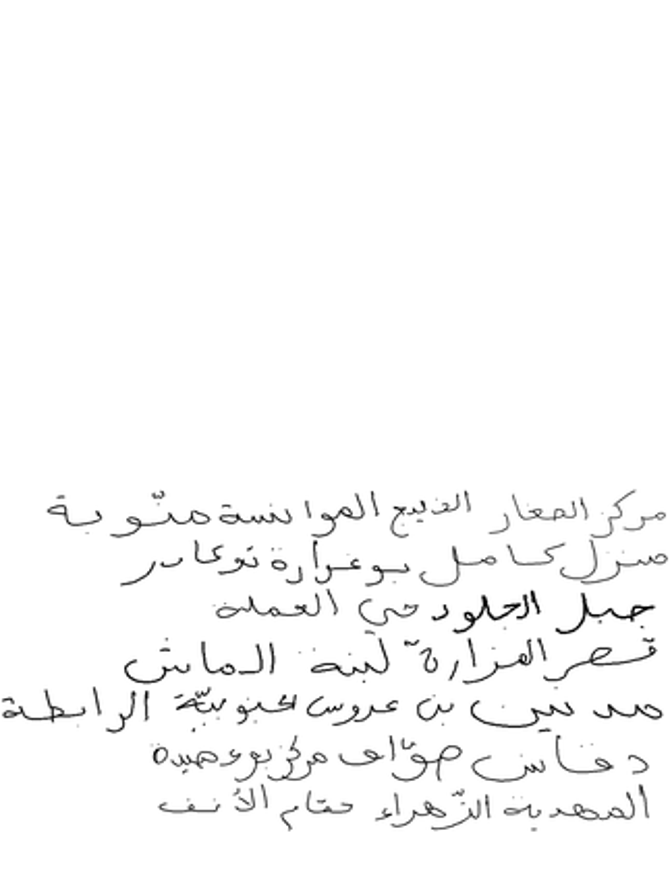 مركز الصغار الفييع الموانسة منّوبة
منزل كامل بوغرارة نوغادر
جبل الجلود حي العملة
قصر المزارة لبنة الماش
مدنين بن عروس الجنوبيّة الرابطة
دقاش صوّاف مركز بوعصيدة
المهدية الزّهراء حمّام الأنف